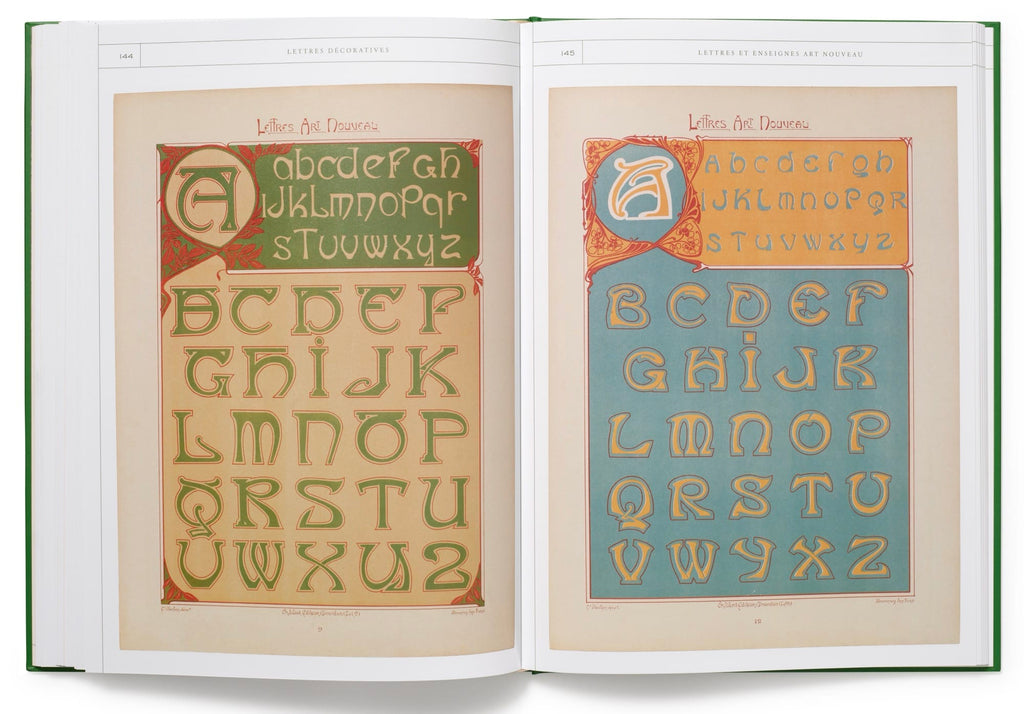 144
LETTRES DÉCORATIVES
Lettres Art Nouveau
A
abcdefgh
ijklmnopqr
stuvwxyz
BCDEF
GHIJK
LMNOP
QRSTU
VWXYZ
9
145
LETTRES ET ENSEIGNES ART NOUVEAU
Lettres Art Nouveau
A
abcdefgh
ijklmnopqr
stuvwxyz
BCDEF
GHIJK
LMNOP
QRSTU
VWYXZ
12